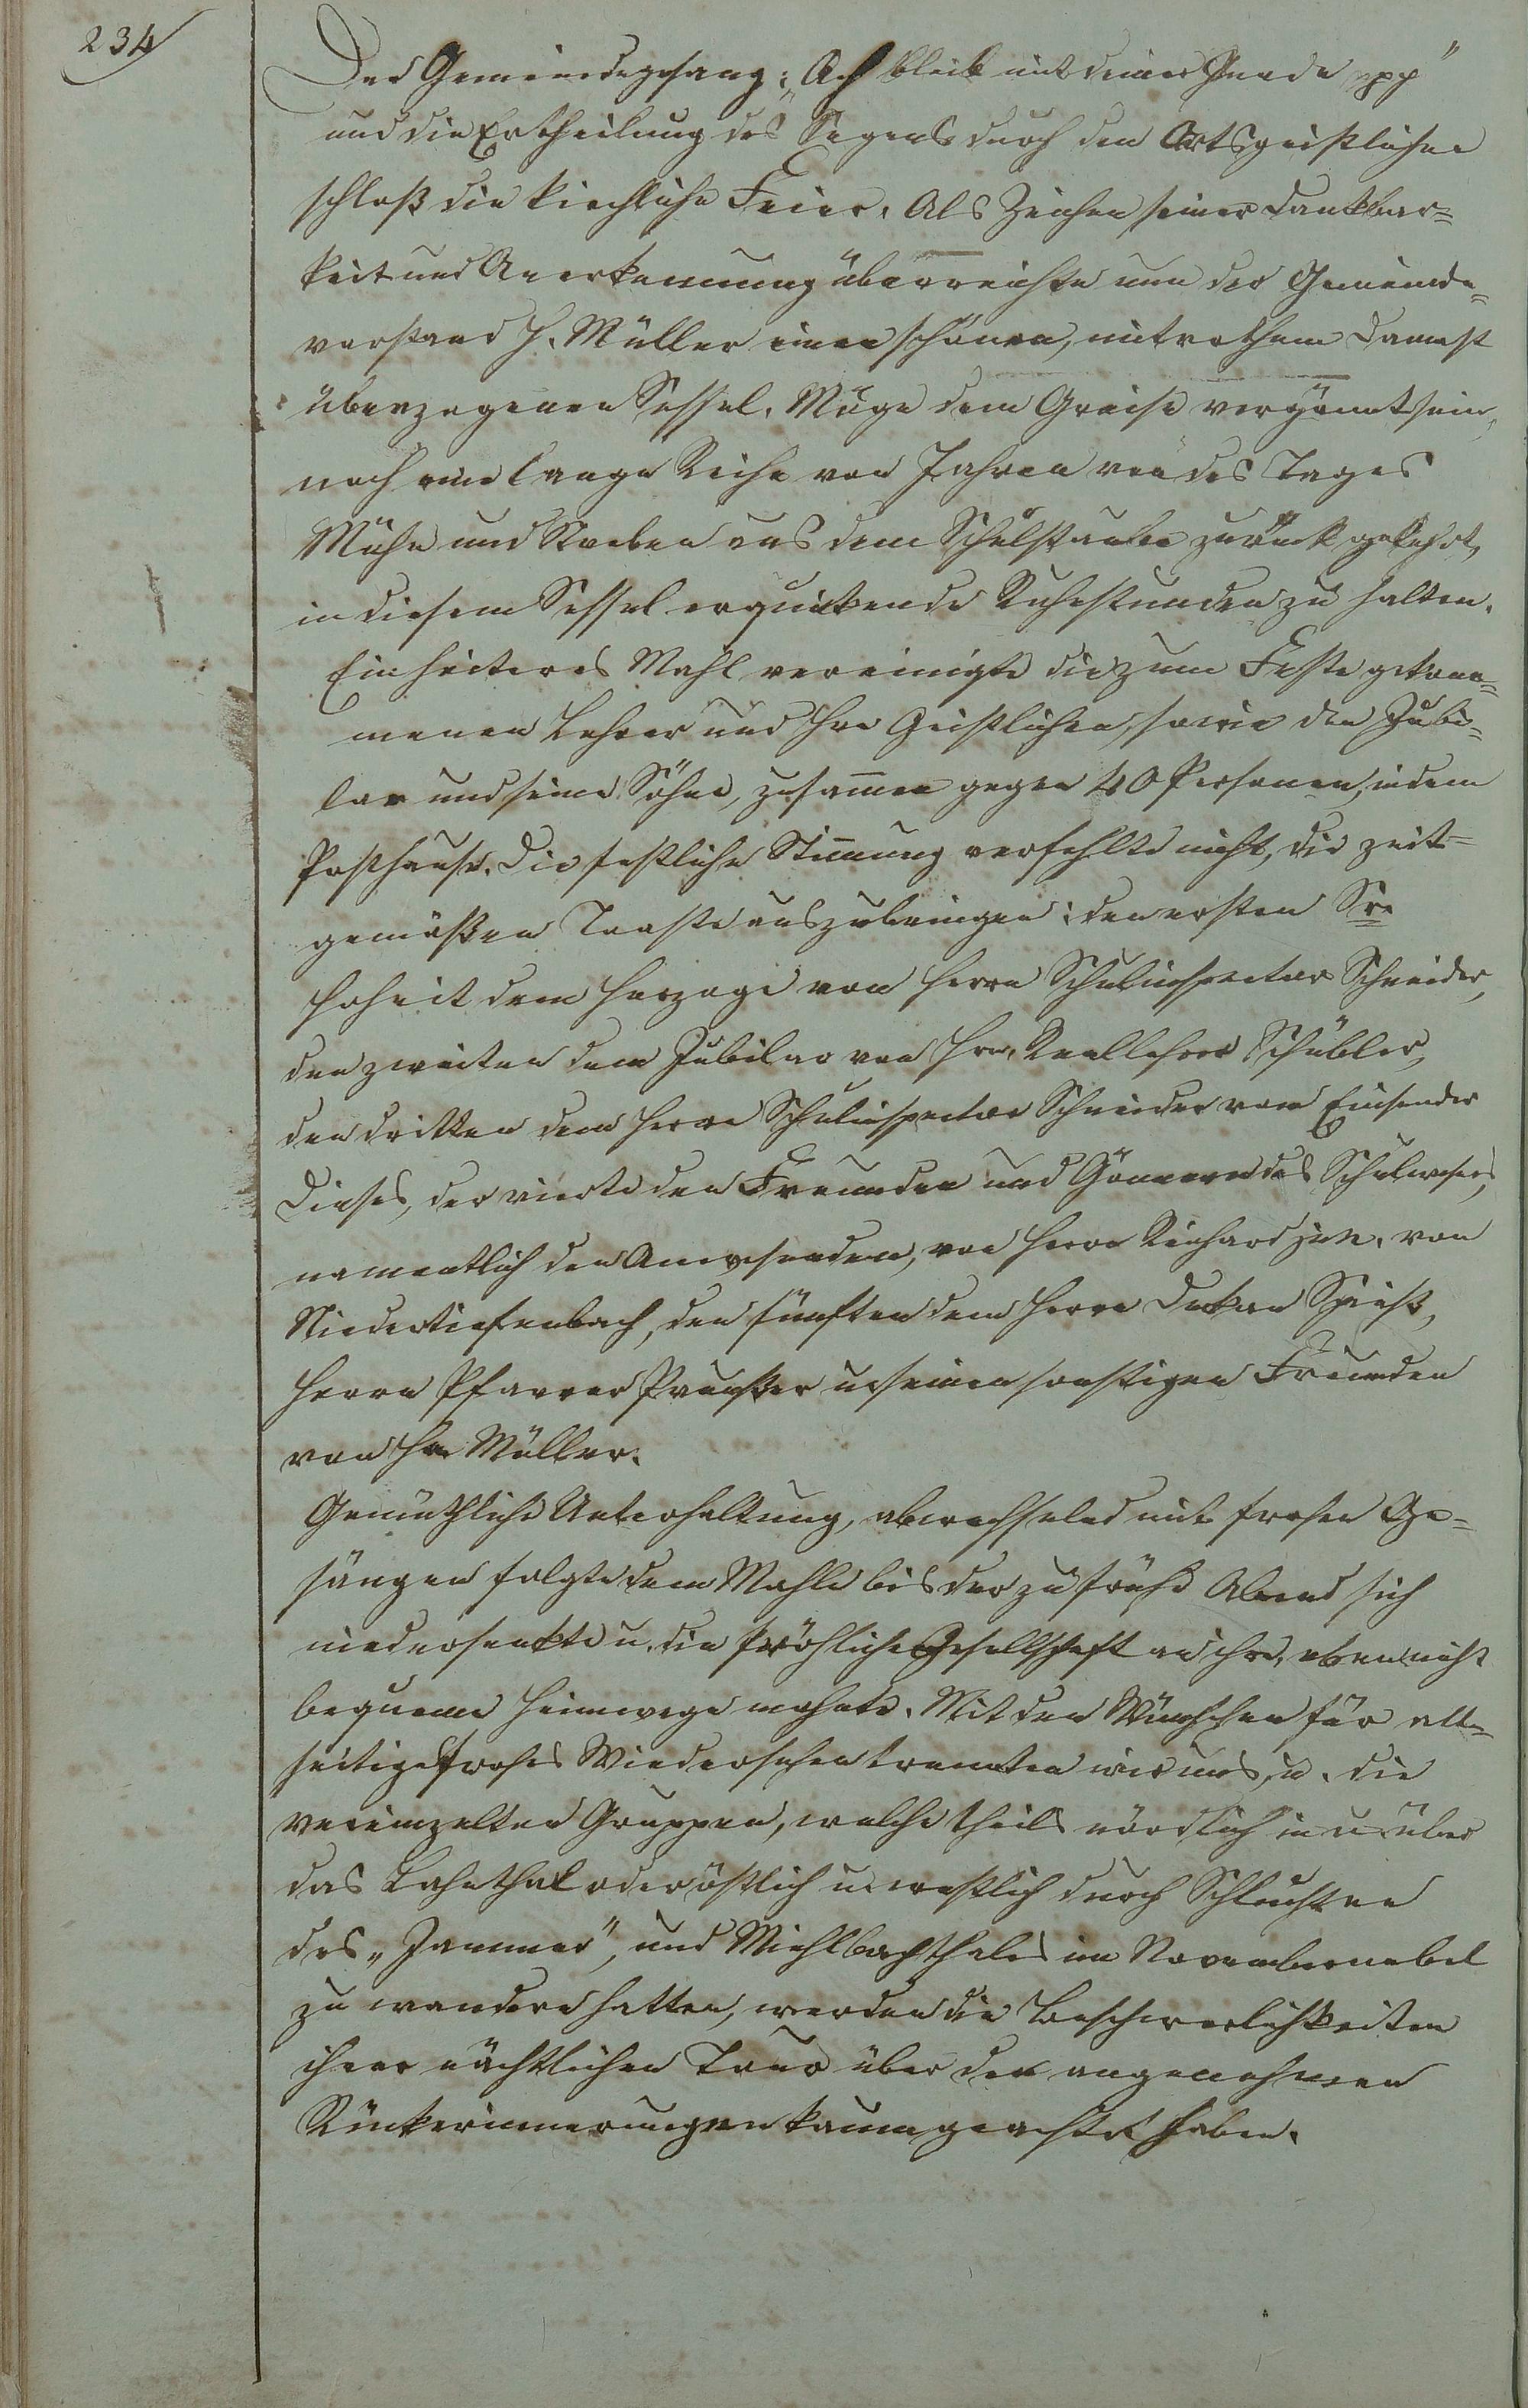 234
Der Gemeindegesang: „Ach bleib mit deiner Gnade pp"
und die Ertheilung des Segens durch den Ortsgeistlichen
schloß die kirchliche Feier. Als Zeichen seiner Dankbar=
keit und Anerkennung überreichte nun der Gemeinde=
vorstand H. Müller einen schönen, mit rothem Damast
überzogenen Sessel. Möge dem Greise vergönnt sein,
noch eine lange Reihe von Jahren von des Tages
Mühe und Streben aus dem Schulstaube zurück gekehrt,
in diesem Sessel erquickende Ruhestunden zu halten.
Ein heiteres Mahl vereinigte die zum Feste gekom=
menen Lehrer und Hrn Geistlichen, sowie den Jubi=
lar und seine Söhne, zusammen gegen 40 Personen, in dem
Posthause. Die festliche Stimmung verfehlte nicht, die zeit=
gemäßen Toaste auszubringen: den ersten Sr.
Hoheit dem Herzoge von Herrn Schulinspector Schneider,
den zweiten dem Jubilar von Hrn. Reallehrer Schübler,
den dritten dem Herrn Schulinspector Schneider vom Einsender
Dieses, der vierte den Freunden und Gönnern des Schulwesens,
namentlich den Anwesenden, von Herrn Reichard jun. von
Niedertiefenbach, den fünften dem Herrn Dekan Spieß,
Herrn Pfarrer u. seinen sonstigen Freunden
von Hn Müller.
Gemüthliche Unterhaltung, abwechselnd mit frohen Ge=
sängen folgte dem Mahle bis der zu frühe Abend sich
niedersenkte u. die fröhliche Gesellschaft an ihre, eben nicht
bequeme Heimwege mahnte. Mit den Wünschen für all=
seitiges frohes Wiedersehen trennten wir uns, u. die
vereinzelten Gruppen, welche theils nördlich in u. über
das Lahnthal oder östlich u. westlich durch Schluchten
des „Jammer", und Mühlbachthales im Novembernebel
zu wandern hatten, werden die Beschwerlichkeiten
ihrer nächtlichen Tour über den angenehmen
Rückerinnerungen kaum geachtet haben.